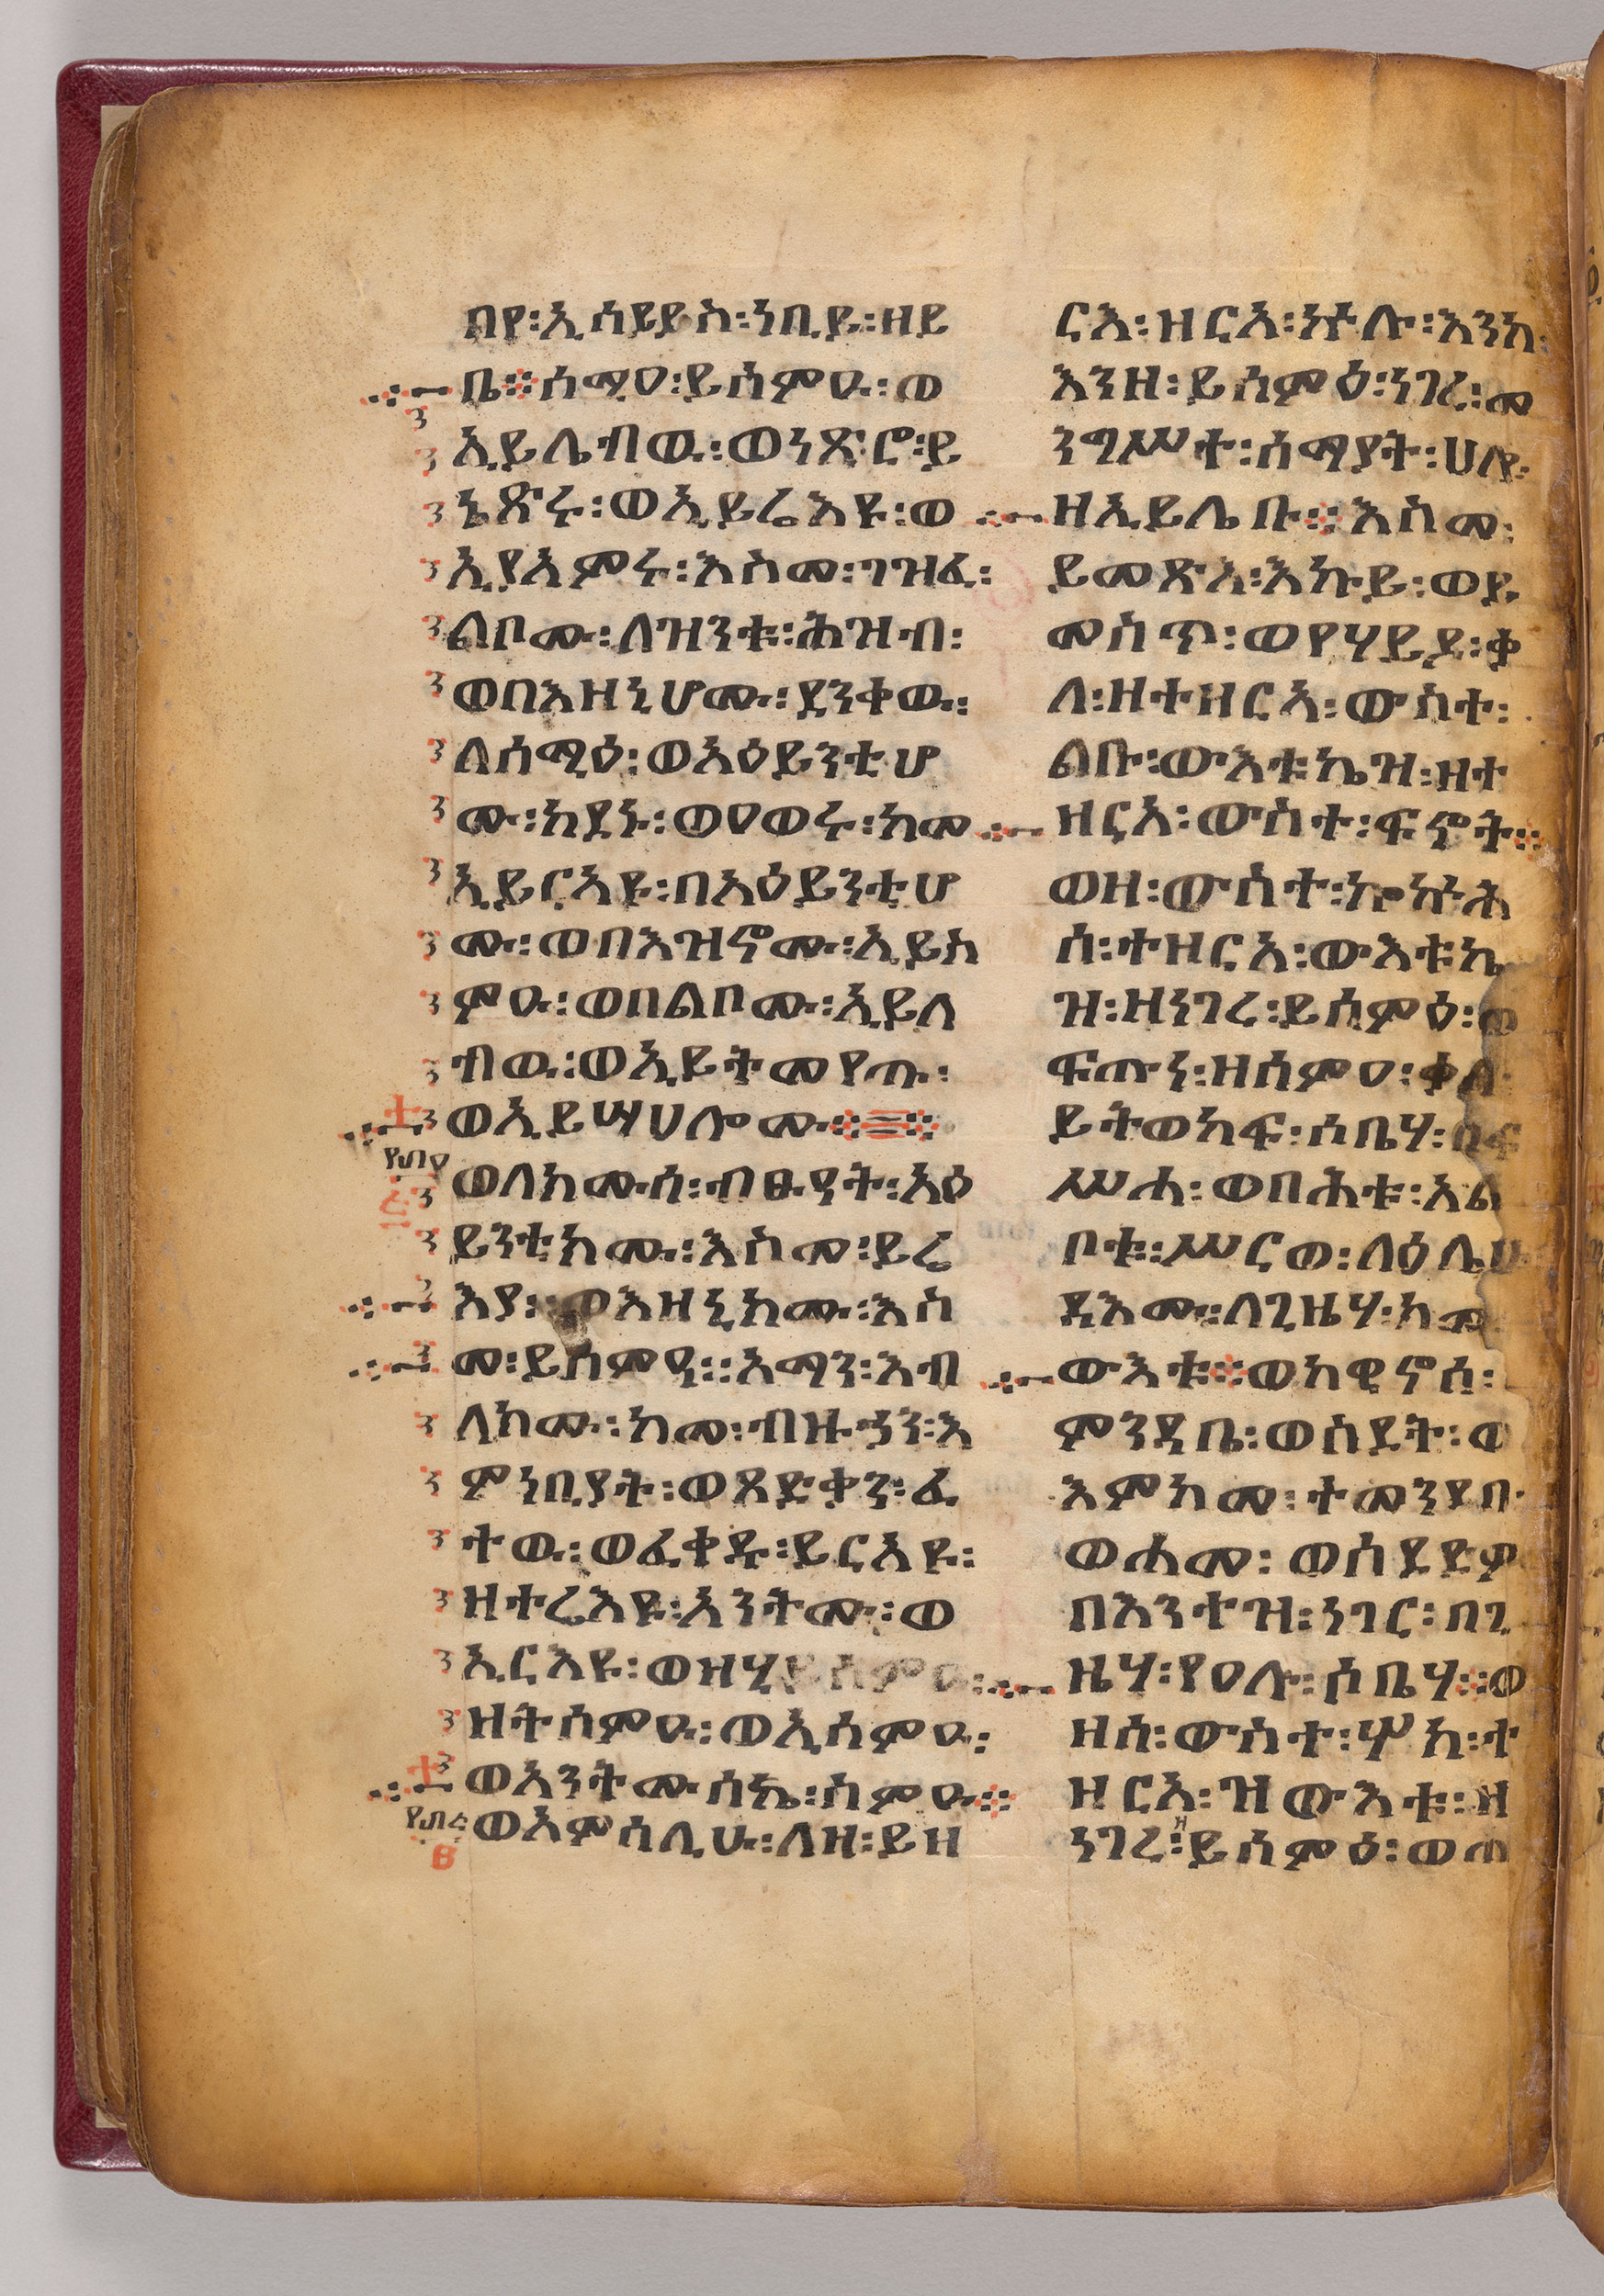 በየ፡ኢሳይያስ፡ነቢይ፡ዘይ
ቤ፨ሰሚዐ፡ይሰምዑ፡ወ
ኢይሌብው፡ወነጽሮ፡ይ
ኔጽሩ፡ወኢይሬእዩ፡ወ
ኢያአምሩ፡እስመ፡ገዝፈ፡
ልቦሙ፡ለዝንቱ፡ሕዝብ፡
ወበእዘኒሆሙ፡ደንቀው፡
ለሰሚዕ፡ወአዕይንቲሆ
ሙ፡ከደኑ፡ወዖወሩ፡ከመ
ኢይርአዩ፡በአዕይንቲሆ
ሙ፡ወበእዝኖሙ፡ኢይስ
ምዑ፡ወበልቦሙ፡ኢይለ
ብው፡ወኢይትመየጡ፡
ወኢይሣሀሎሙ፨፨
ወለክሙሰ፡ብፁዓት፡አዕ
ይንቲክሙ፡እስመ፡ይሬ
እያ፡፡ወእዘኒክሙ፡እስ
መ፡ይሰምዓ፡፡አማን፡እብ
ለክሙ፡ከመ፡ብዙኃን፡እ
ምነቢያት፡ወጻድቃን፡ፈ
ተው፡ወፈቀዱ፡ይርአዩ፡
ዘተሬእዩ፡አንትሙ፡ወ
ኢርእዩ፡ወዝሂይስምዑ፡
ዘትሰምዑ፡ወኢሰምዑ፡
ወአንትሙሰኬ፡ስምዑ፨
ወአምሳሊሁ፡ለዘ፡ይዘ
ርእ፡ዘርአ፡ኵሉ፡እንከ፡
እንዘ፡ይሰምዕ፡ነገረ፡መ
ንግሥተ፡ሰማያት፡ሀለ፡
ዘኢይሌቡ፨እስመ፡
ይመጽእ፡እኩይ፡ወይ
መስጥ፡ወየሃይድ፡ቃ
ለ፡ዘተዘርአ፡ውስተ፡
ልቡ፡ውእቱኬዝ፡ዘተ
ዘርአ፡ውስተ፡ፍኖት፨
ወዘ፡ውስተ፡ኰኵሕ
ሰ፡ተዘርአ፡ውእቱኬ
ዝ፡ዘነገረ፡ይሰምዕ፡ወ
ፍጡነ፡ዘሰምዐ፡ቃለ
ይትወከፍ፡ሶቤሃ፡በፍ
ሥሐ፡ወበሕቱ፡አል
ቦቱ፡ሥርወ፡ለዕሌሁ
ዳእሙ፡ለጊዜሃ፡ከመ
ውእቱ፨ወከዊኖሰ፡
ምንዳቤ፡ወስደት፡ወ
እምከመ፡ተመንደበ
ወሐመ፡ወሰደድዎ
በእንተዝ፡ነገር፡በጊ
ዜሃ፡የዐሉ፡ሶቤሃ፨ወ
ዘሰ፡ውስተ፡ሦክ፡ተ
ዘርአ፡ዝውእቱ፡ዘ
ነገረ፡ዘይሰምዕ፡ወጠ